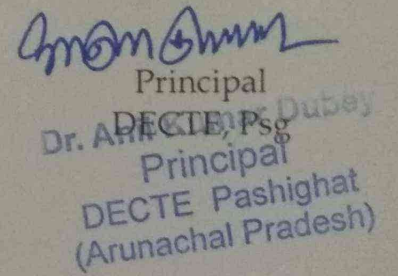 Principal
DECTE, Psg
Dr. Anil Kumar Dubey
Principal
DECTE Pashighat
(Arunachal Pradesh)